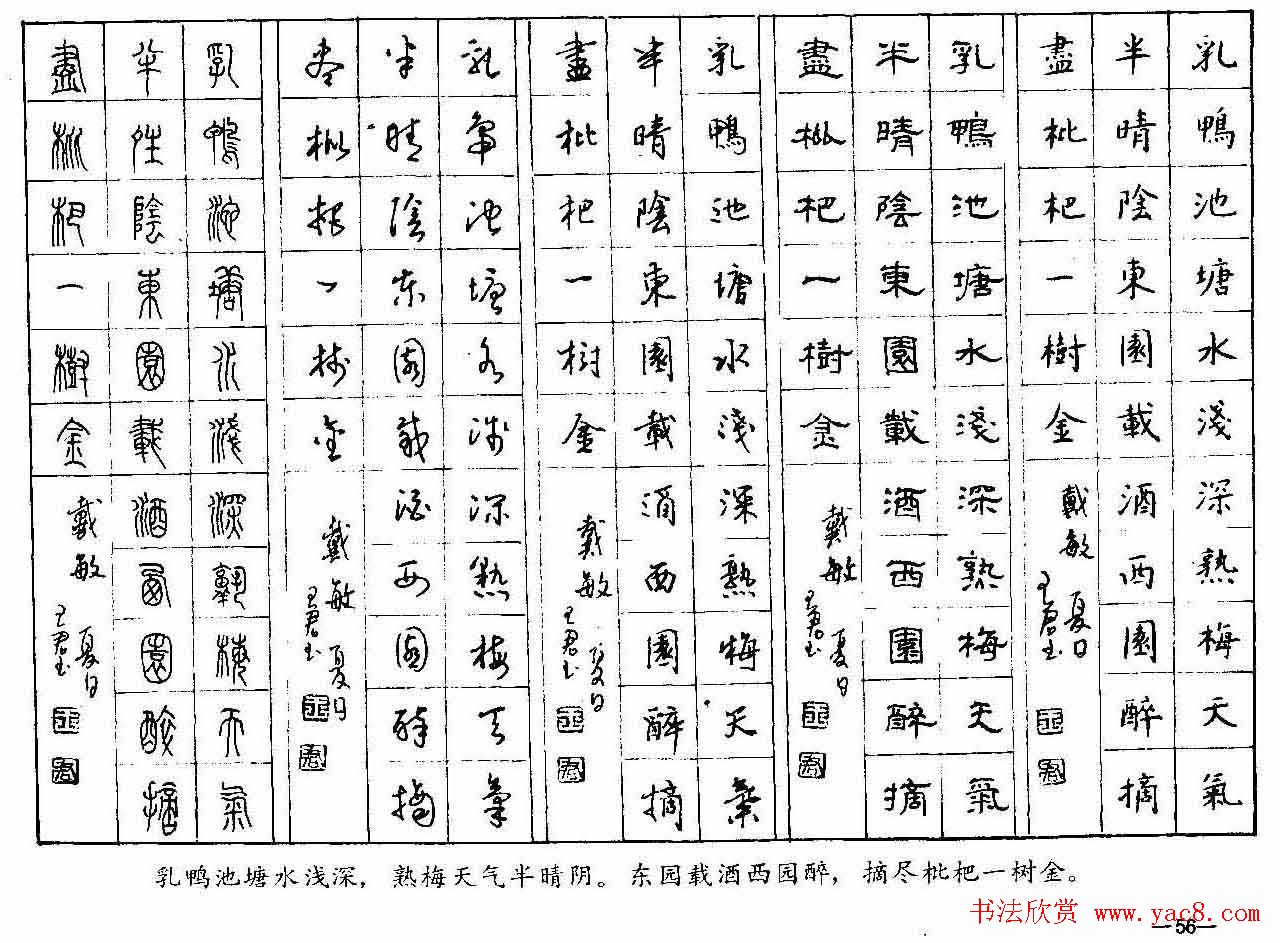 乳鴨池塘水淺深熟梅天氣
半晴陰東園載酒西園醉摘
盡枇杷一樹金
戴敏 夏日
王君书
乳鴨池塘水淺深熟梅天氣
半晴陰東園載酒西園醉摘
盡枇杷一樹金
戴敏 夏日
王君书
乳鴨池塘水淺深熟梅天氣
半晴陰東園載酒西園醉摘
盡枇杷一樹金
戴敏 夏日
王君书
乳鴨池塘水淺深熟梅天氣
半晴陰東園載酒西園醉摘
盡枇杷一樹金
戴敏 夏日
王君书
乳鴨池塘水淺深熟梅天氣
半晴陰東園載酒西園醉摘
盡枇杷一樹金
戴敏 夏日
王君书
乳鸭池塘水浅深，熟梅天气半晴阴。东园载酒西园醉，摘尽枇杷一树金。
书法欣赏 www.yac8.com
—56—